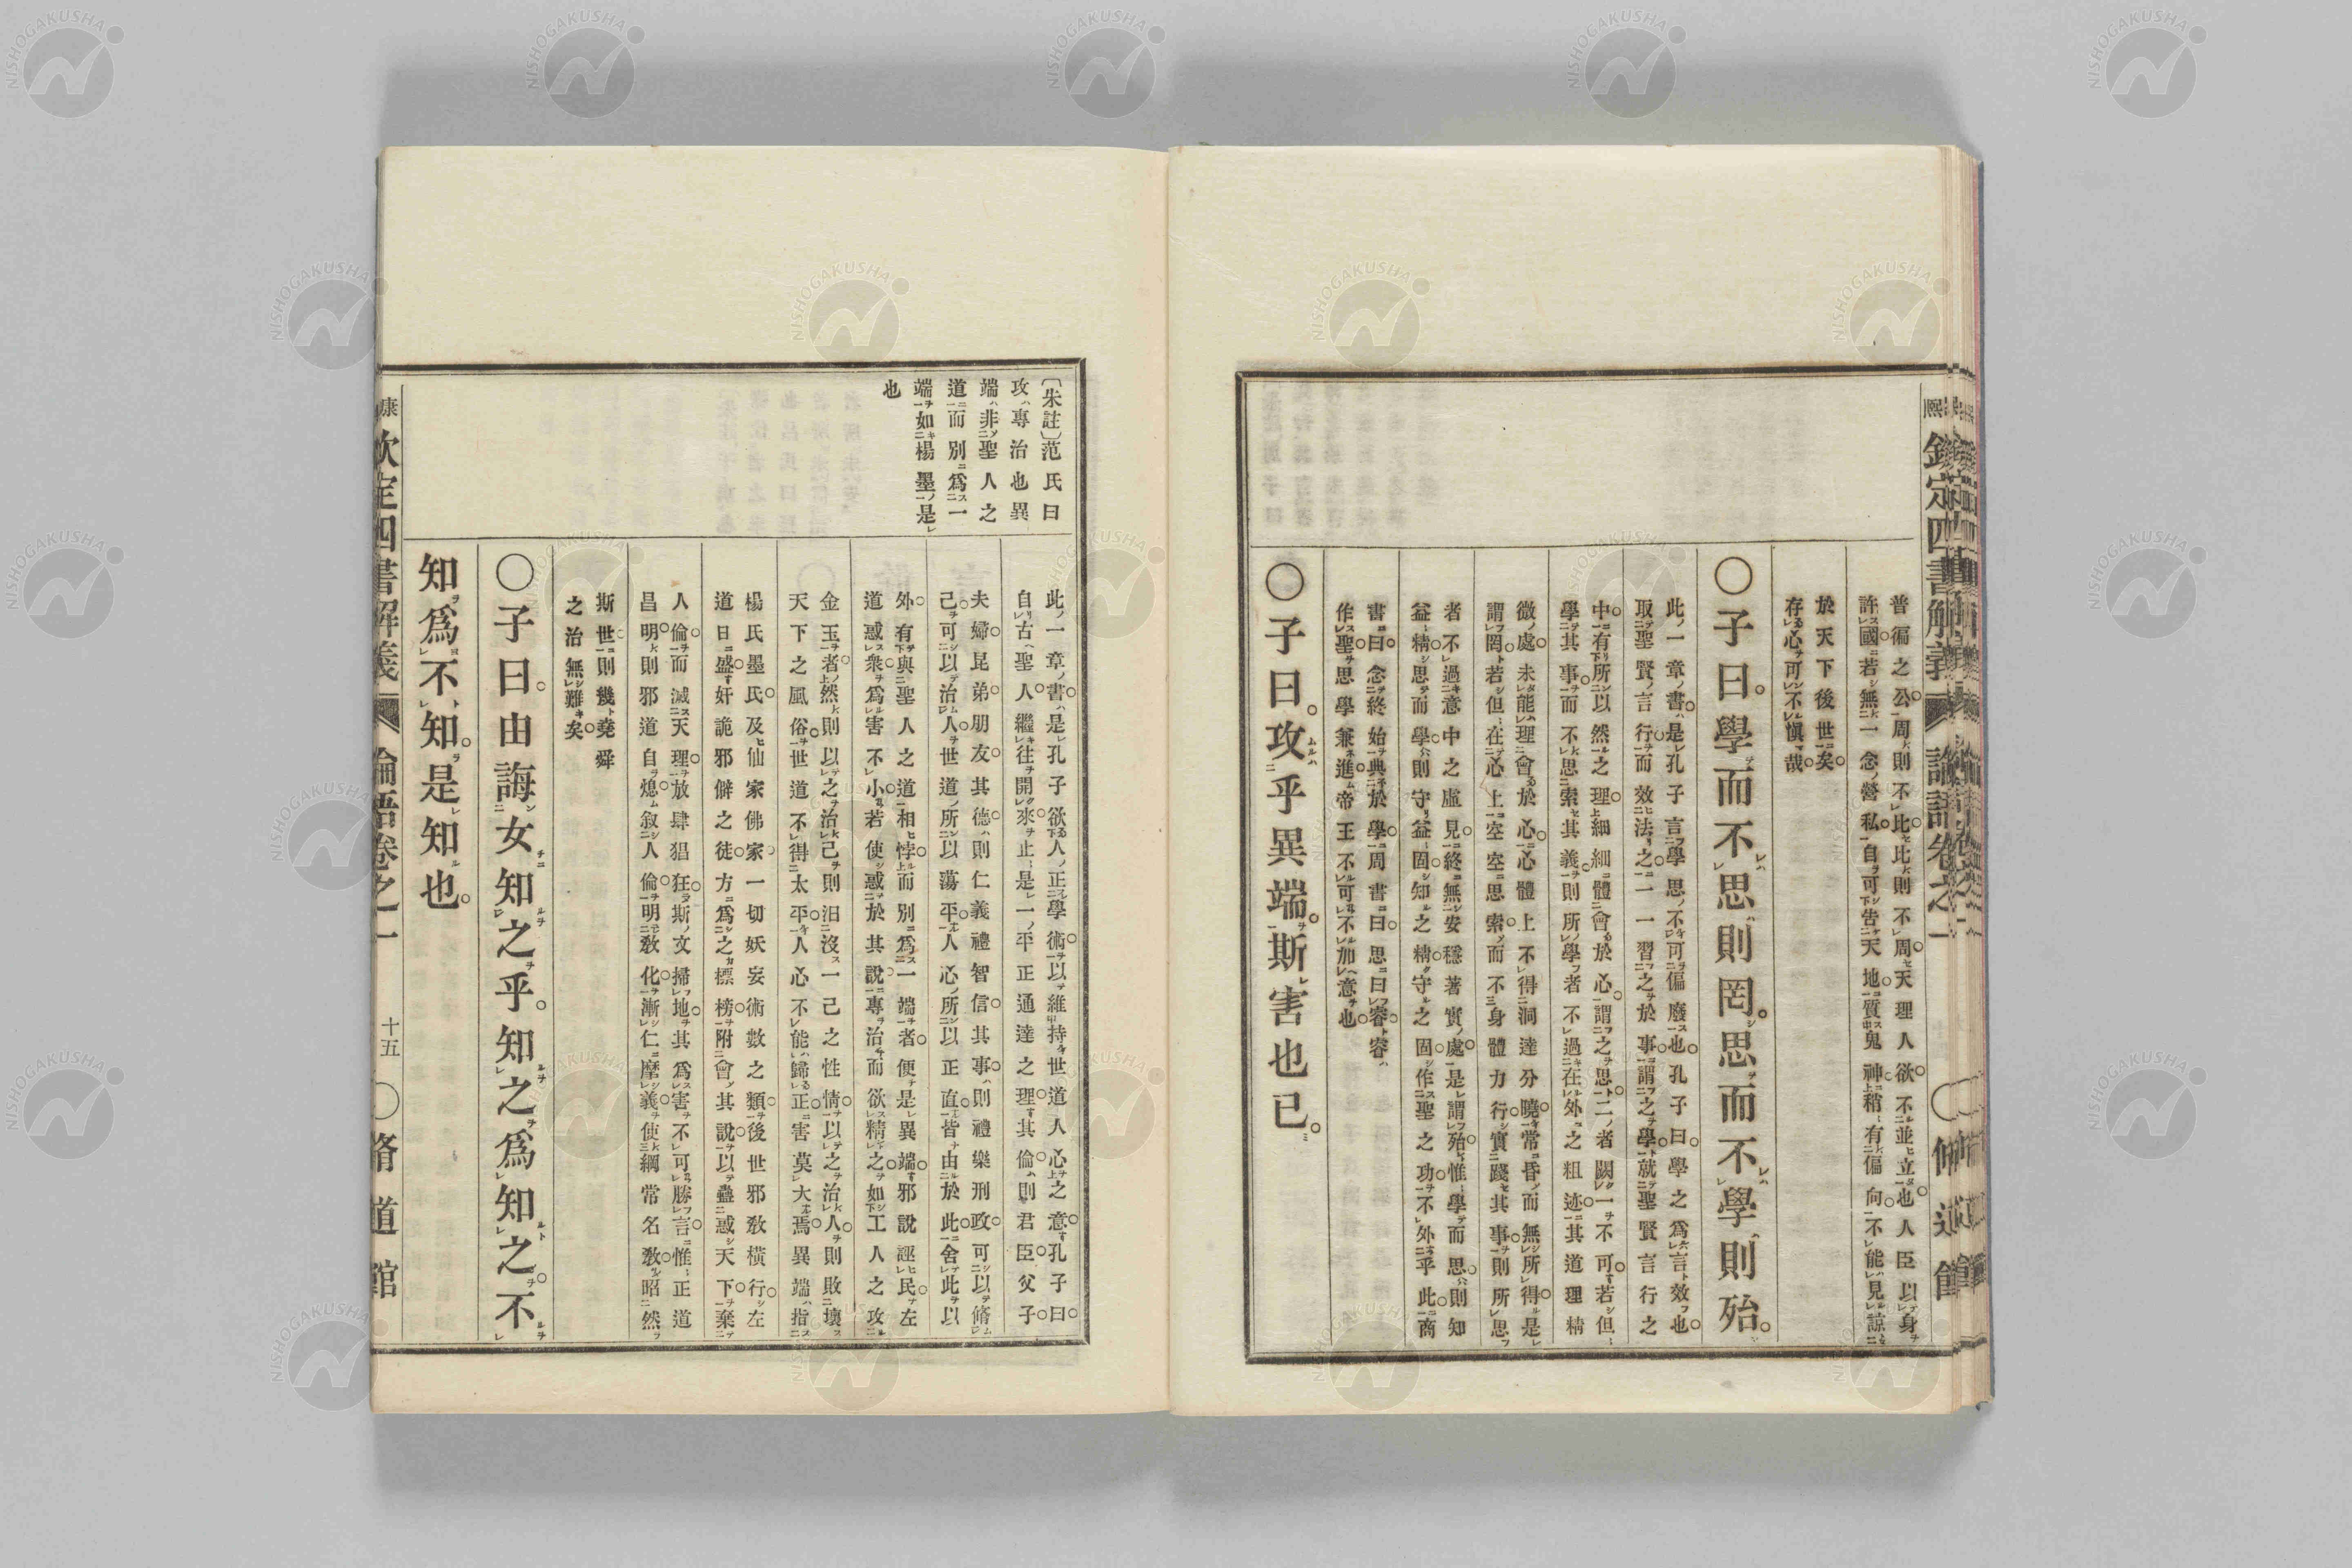 欽定四書解義
論語卷之一
脩道館
普徧之公周則不比比則不周天理人欲不並立也人臣以身
許國若無一念營私自可告天地質鬼神稍有偏向不能見諒
於天下後世矣
存心可不愼哉
〇子曰學而不思則罔思而不學則殆。
此一章書是孔子言學思不可偏廢也孔子曰學之爲言效也
取聖賢言行而效法之一一習之於事謂之學就聖賢言行之
中有所以然之理細細體會於心謂之思二者闕一不可若但
學其事而不思索其義則所學者不過在外之粗迹其道理精
微處未能理會於心心體上不得洞達分曉常昏而無所得是
謂罔若但在心上空空思索而不身體力行實踐其事則所思
者不過意中之虛見終無安穩著實處是謂殆惟學而思則知
益精思而學則守益固知之精守之固作聖之功不外乎此商
書曰念終始典於學周書曰思曰睿睿
作聖思學兼進帝王不可不加意也
〇子曰。攻乎異端。斯害也已。
〔朱註〕范氏曰
攻專治也異
端非聖人之
道而別爲一
端如楊墨是
也
此一章書是孔子欲人正學術以維持世道人心之意孔子曰
自古聖人繼往開來止是一平正通達之理其倫則君臣父子
夫婦昆弟朋友其德則仁義禮智信其事則禮樂刑政可以脩
己可以治人世道所以蕩平人心所以正直皆由於此舍此以
外有與聖人之道相悖而別爲一端者便是異端邪說誣民左
道惑衆爲害不小若使惑於其說專治而欲精之如工人之攻
金玉者然則以之治己則汨沒一己之性情以之治人則敗壞
天下之風俗世道不得太平人心不能歸正害莫大焉異端指
楊氏墨氏及仙家佛家一切妖妄術數之類後世邪敎橫行左
道日盛奸詭邪僻之徒方爲之標榜附會其說以蠱惑天下棄
人倫而滅天理放肆猖狂斯文掃地其爲害不可勝言惟正道
昌明則邪道自熄叙人倫明敎化漸仁摩義使綱常名敎昭然
斯世則幾堯舜
之治無難矣
〇子曰由誨女知之乎。知之爲知之不
知爲不知。是知也。
康
欽定四書解義
論語卷之一
十五
〇脩道館